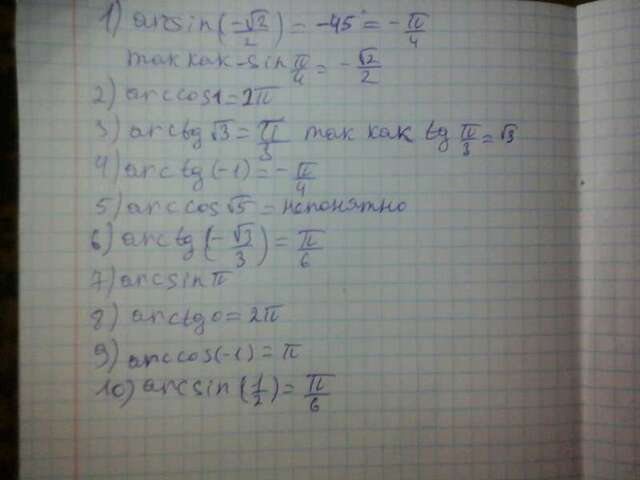 1) arcsin(-√2/2) = -45° = -π/4
так как -sin π/4 = -√2/2
2) arccos1=2π
3) arctg √3 = π/3 так как tg π/3 = √3
4) arctg(-1) = -π/4
5) arccos √5 = непонятно
6) arctg(-√3/3) = π/6
7) arcsin π
8) arctg 0 = 2π
9) arccos(-1) = π
10) arcsin(1/2) = π/6